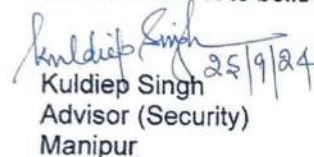 Kuldiep Singh
25/9/24
Kuldiep Singh
Advisor (Security)
Manipur